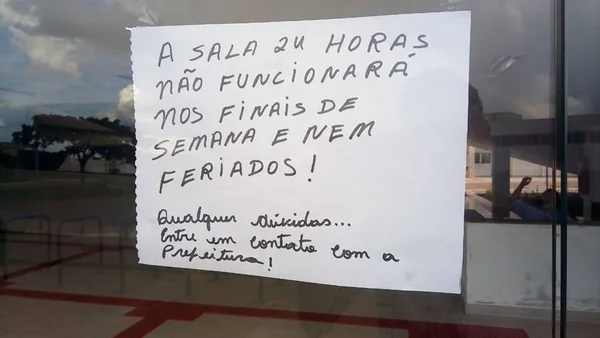 A SALA 24 HORAS
NÃO FUNCIONARÁ
NOS FINAIS DE
SEMANA E NEM
FERIADOS!
Qualquer dúvidas...
Entre em contato com a
Prefeitura!